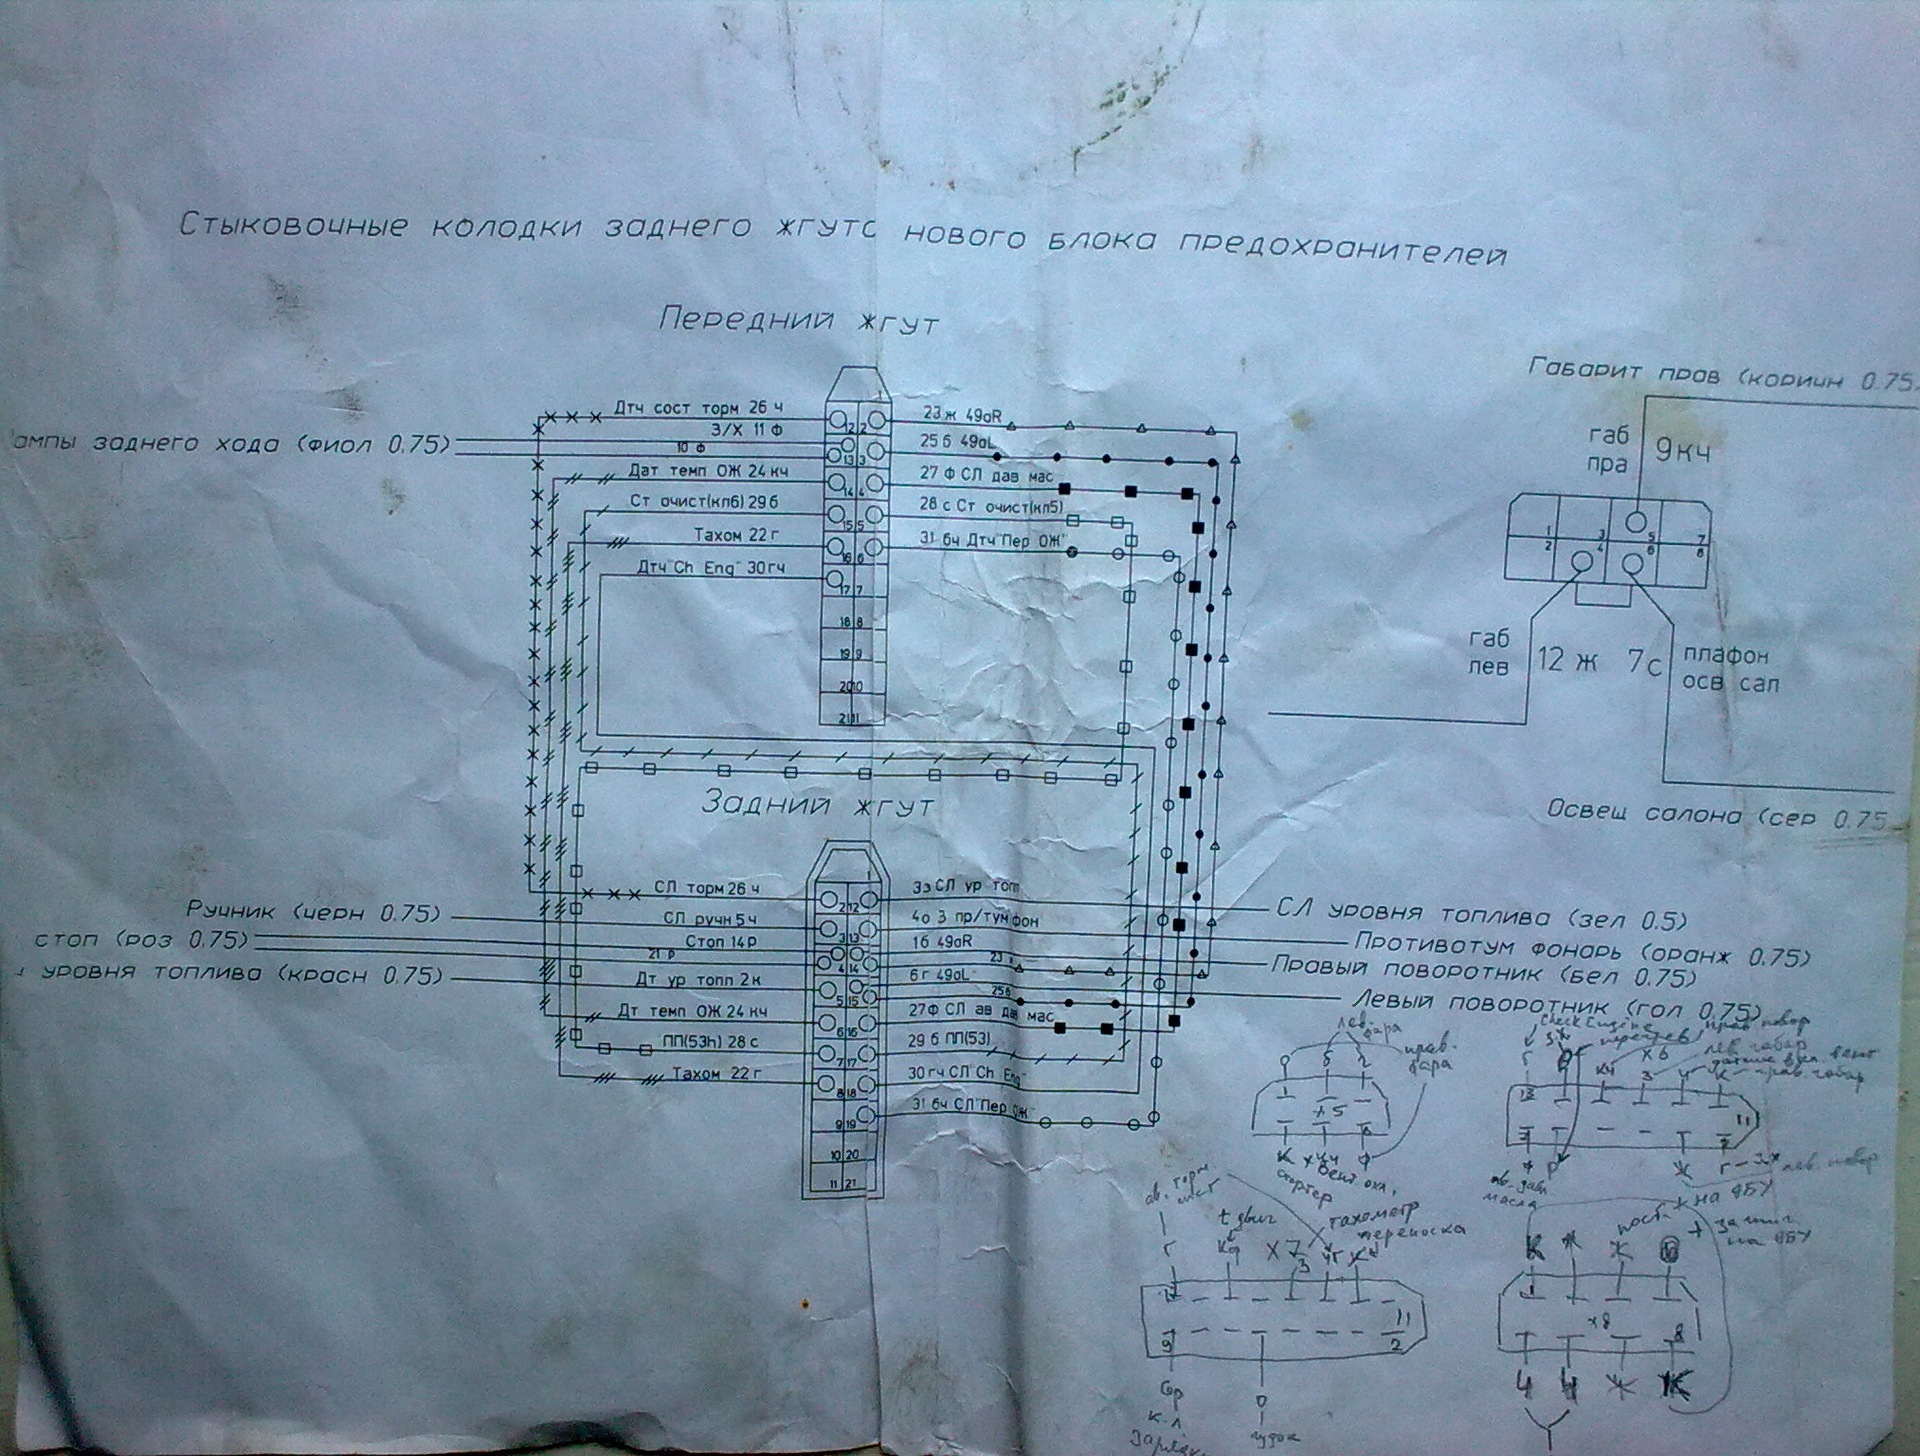 Стыковочные колодки заднего жгута нового блока предохранителей
Передний жгут
Дтч сост торм 26 ч
23 ж 49aR
З/Х 11 Ф
10 Ф
25 б 49aL
ампы заднего хода (фиол 0.75)
Дат темп ОЖ 24 кч
27 Ф СЛ дав мас
Ст очист(кл6) 29 б
28 с Ст очист(кл5)
Тахом 22 г
31 бч Дтч "Пер ОЖ"
Дтч "Ch Eng" 30 гч
12 2
13 3
14 4
15 5
16 6
17 7
18 8
19 9
20 10
21 11
Габарит прав (коричн 0.75)
габ
пра
9 кч
1 3 5 7
2 4 6 8
габ
лев
12 ж
7 с
плафон
осв сал
Освещ салона (сер 0.75
Задний жгут
1
СЛ торм 26 ч
3з СЛ ур топл
Ручник (черн 0.75)
СЛ ручн 5 ч
4о З пр/тум фон
СЛ уровня топлива (зел 0.5)
стоп (роз 0.75)
Стоп 14 р
21 р
1б 49aR
23 ж
Противотум фонарь (оранж 0.75)
уровня топлива (красн 0.75)
Дт ур топл 2 к
6 г 49aL
25 б
Правый поворотник (бел 0.75)
Левый поворотник (гол 0.75)
Дт темп ОЖ 24 кч
27Ф СЛ ав дав мас
ПП(53h) 28 с
29 б ПП(53)
Тахом 22 г
30 гч СЛ "Ch Eng"
31 бч СЛ "Пер ОЖ"
2 12
3 13
4 14
5 15
6 16
7 17
8 18
9 19
10 20
11 21
лев.
фара
прав.
фара
О б г
1
х5
8
К ч Ф
стартер
вент охл.
Check Engine
перегрев
прав повор
х6
лев габар
прав. габар
Г Р кч З Ч К
13 11
2
Р Ж Г
ав. давл
масла
лев. повор
+ на ЭБУ
ав. торм
t двиг
тахометр
переноска
Г Кор х7 З чг
11
9 2
Сер
к.л
О
гудок
пост +
+ зажиг
на ЭБУ
К Ж Ж
1
х8
8
Ч Ч Ж К